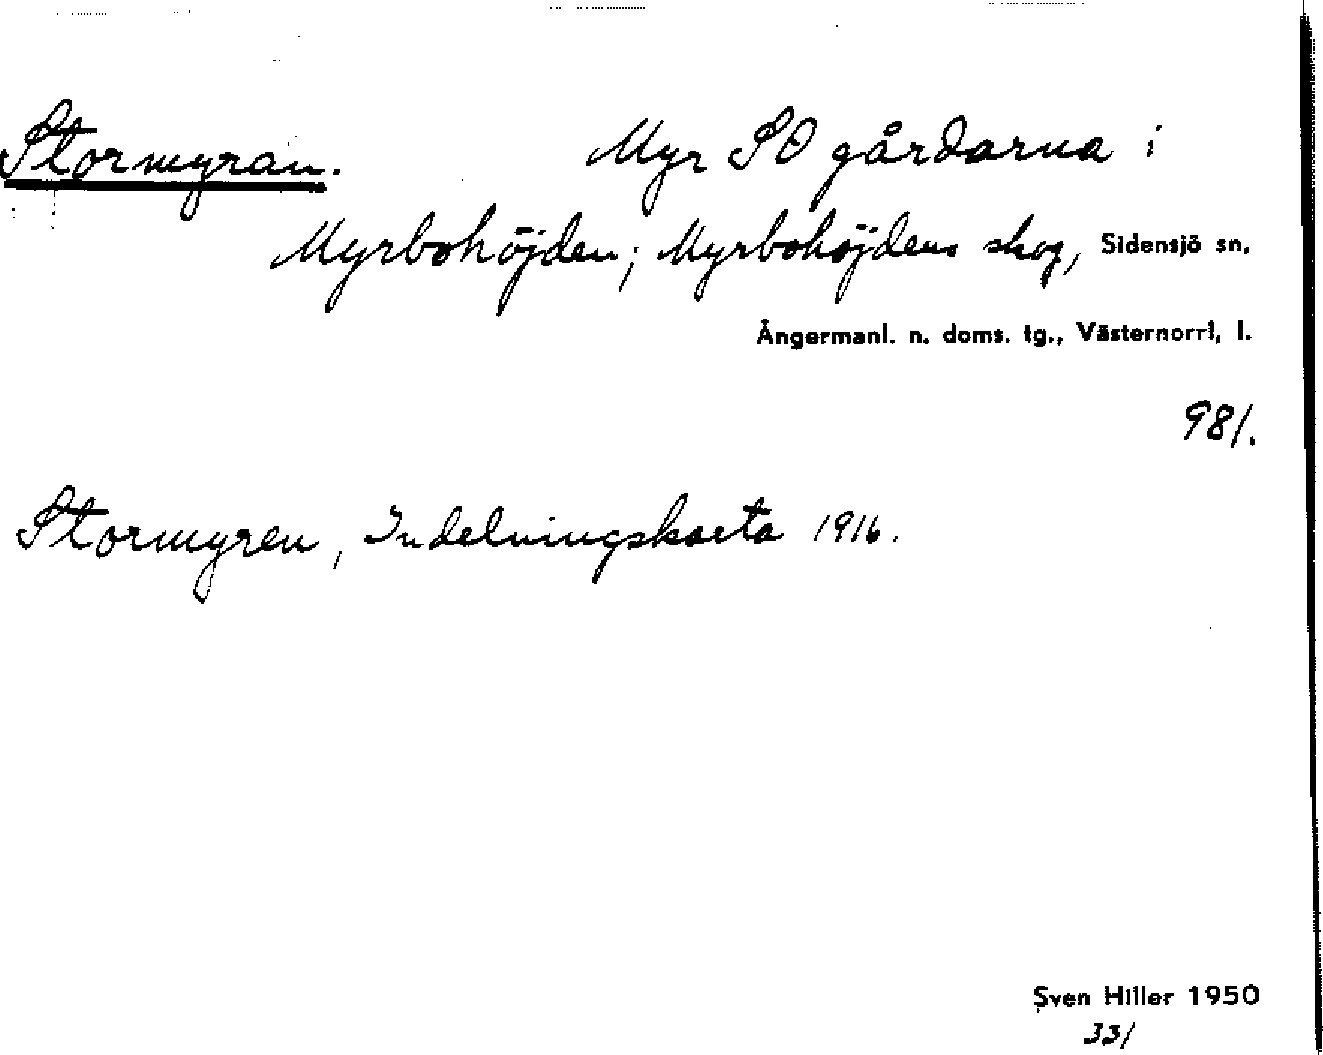 Stormyran. Myr SO gårdarna i
Myrbohöjden; Myrbohöjdens skog, Sidensjö sn.
Ångermanl. n. doms. tg., Västernorrl. l.
981.
Stormyren, Indelningskarta 1916.
Sven Hiller 1950
331